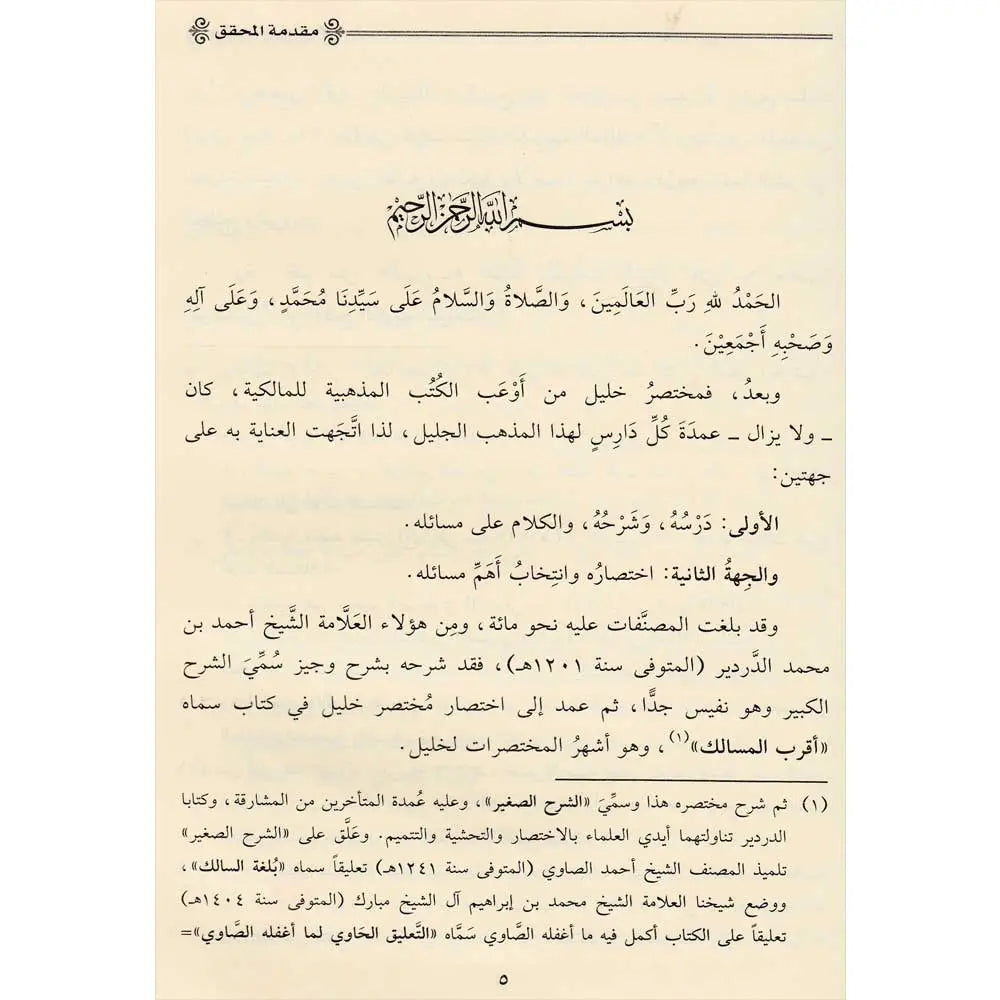 مقدمة المحقق
بسم الله الرحمن الرحيم
الحَمْدُ للهِ رَبِّ العَالَمِينَ، وَالصَّلاةُ وَالسَّلامُ عَلَى سَيِّدِنَا مُحَمَّدٍ، وَعَلَى آلِهِ
وَصَحْبِهِ أَجْمَعِيْنَ.
وبعدُ، فمختصرُ خليل من أَوْعَب الكُتُب المذهبية للمالكية، كان
ـ ولا يزال ـ عمدَةَ كُلِّ دَارِسٍ لهذا المذهب الجليل، لذا اتَّجَهت العناية به على
جهتين:
الأولى: دَرْسُهُ، وَشَرْحُهُ، والكلام على مسائله.
والجِهةُ الثانية: اختصارُه وانتِخابُ أَهَمِّ مسائله.
وقد بلغت المصنَّفات عليه نحو مائة، ومِن هؤلاء العَلَّامة الشَّيخ أحمد بن
محمد الدَّردير (المتوفى سنة ١٢٠١هـ)، فقد شرحه بشرح وجيز سُمِّيَ الشرح
الكبير وهو نفيس جدًّا، ثم عمد إلى اختصار مُختصر خليل في كتاب سماه
«أقرب المسالك»(١)، وهو أشهرُ المختصرات لخليل.
(١) ثم شرح مختصره هذا وسمِّيَ «الشرح الصغير»، وعليه عُمدة المتأخرين من المشارقة، وكتابا
الدردير تناولتهما أيدي العلماء بالاختصار والتحشية والتتميم. وعَلَّق على «الشرح الصغير»
تلميذ المصنف الشيخ أحمد الصاوي (المتوفى سنة ١٢٤١هـ) تعليقاً سماه «بُلغة السالك»،
ووضع شيخنا العلامة الشيخ محمد بن إبراهيم آل الشيخ مبارك (المتوفى سنة ١٤٠٤هـ)
تعليقاً على الكتاب أكمل فيه ما أغفله الصَّاوي سَمَّاه «التَّعليق الحَاوي لما أغفله الصَّاوي»=
٥